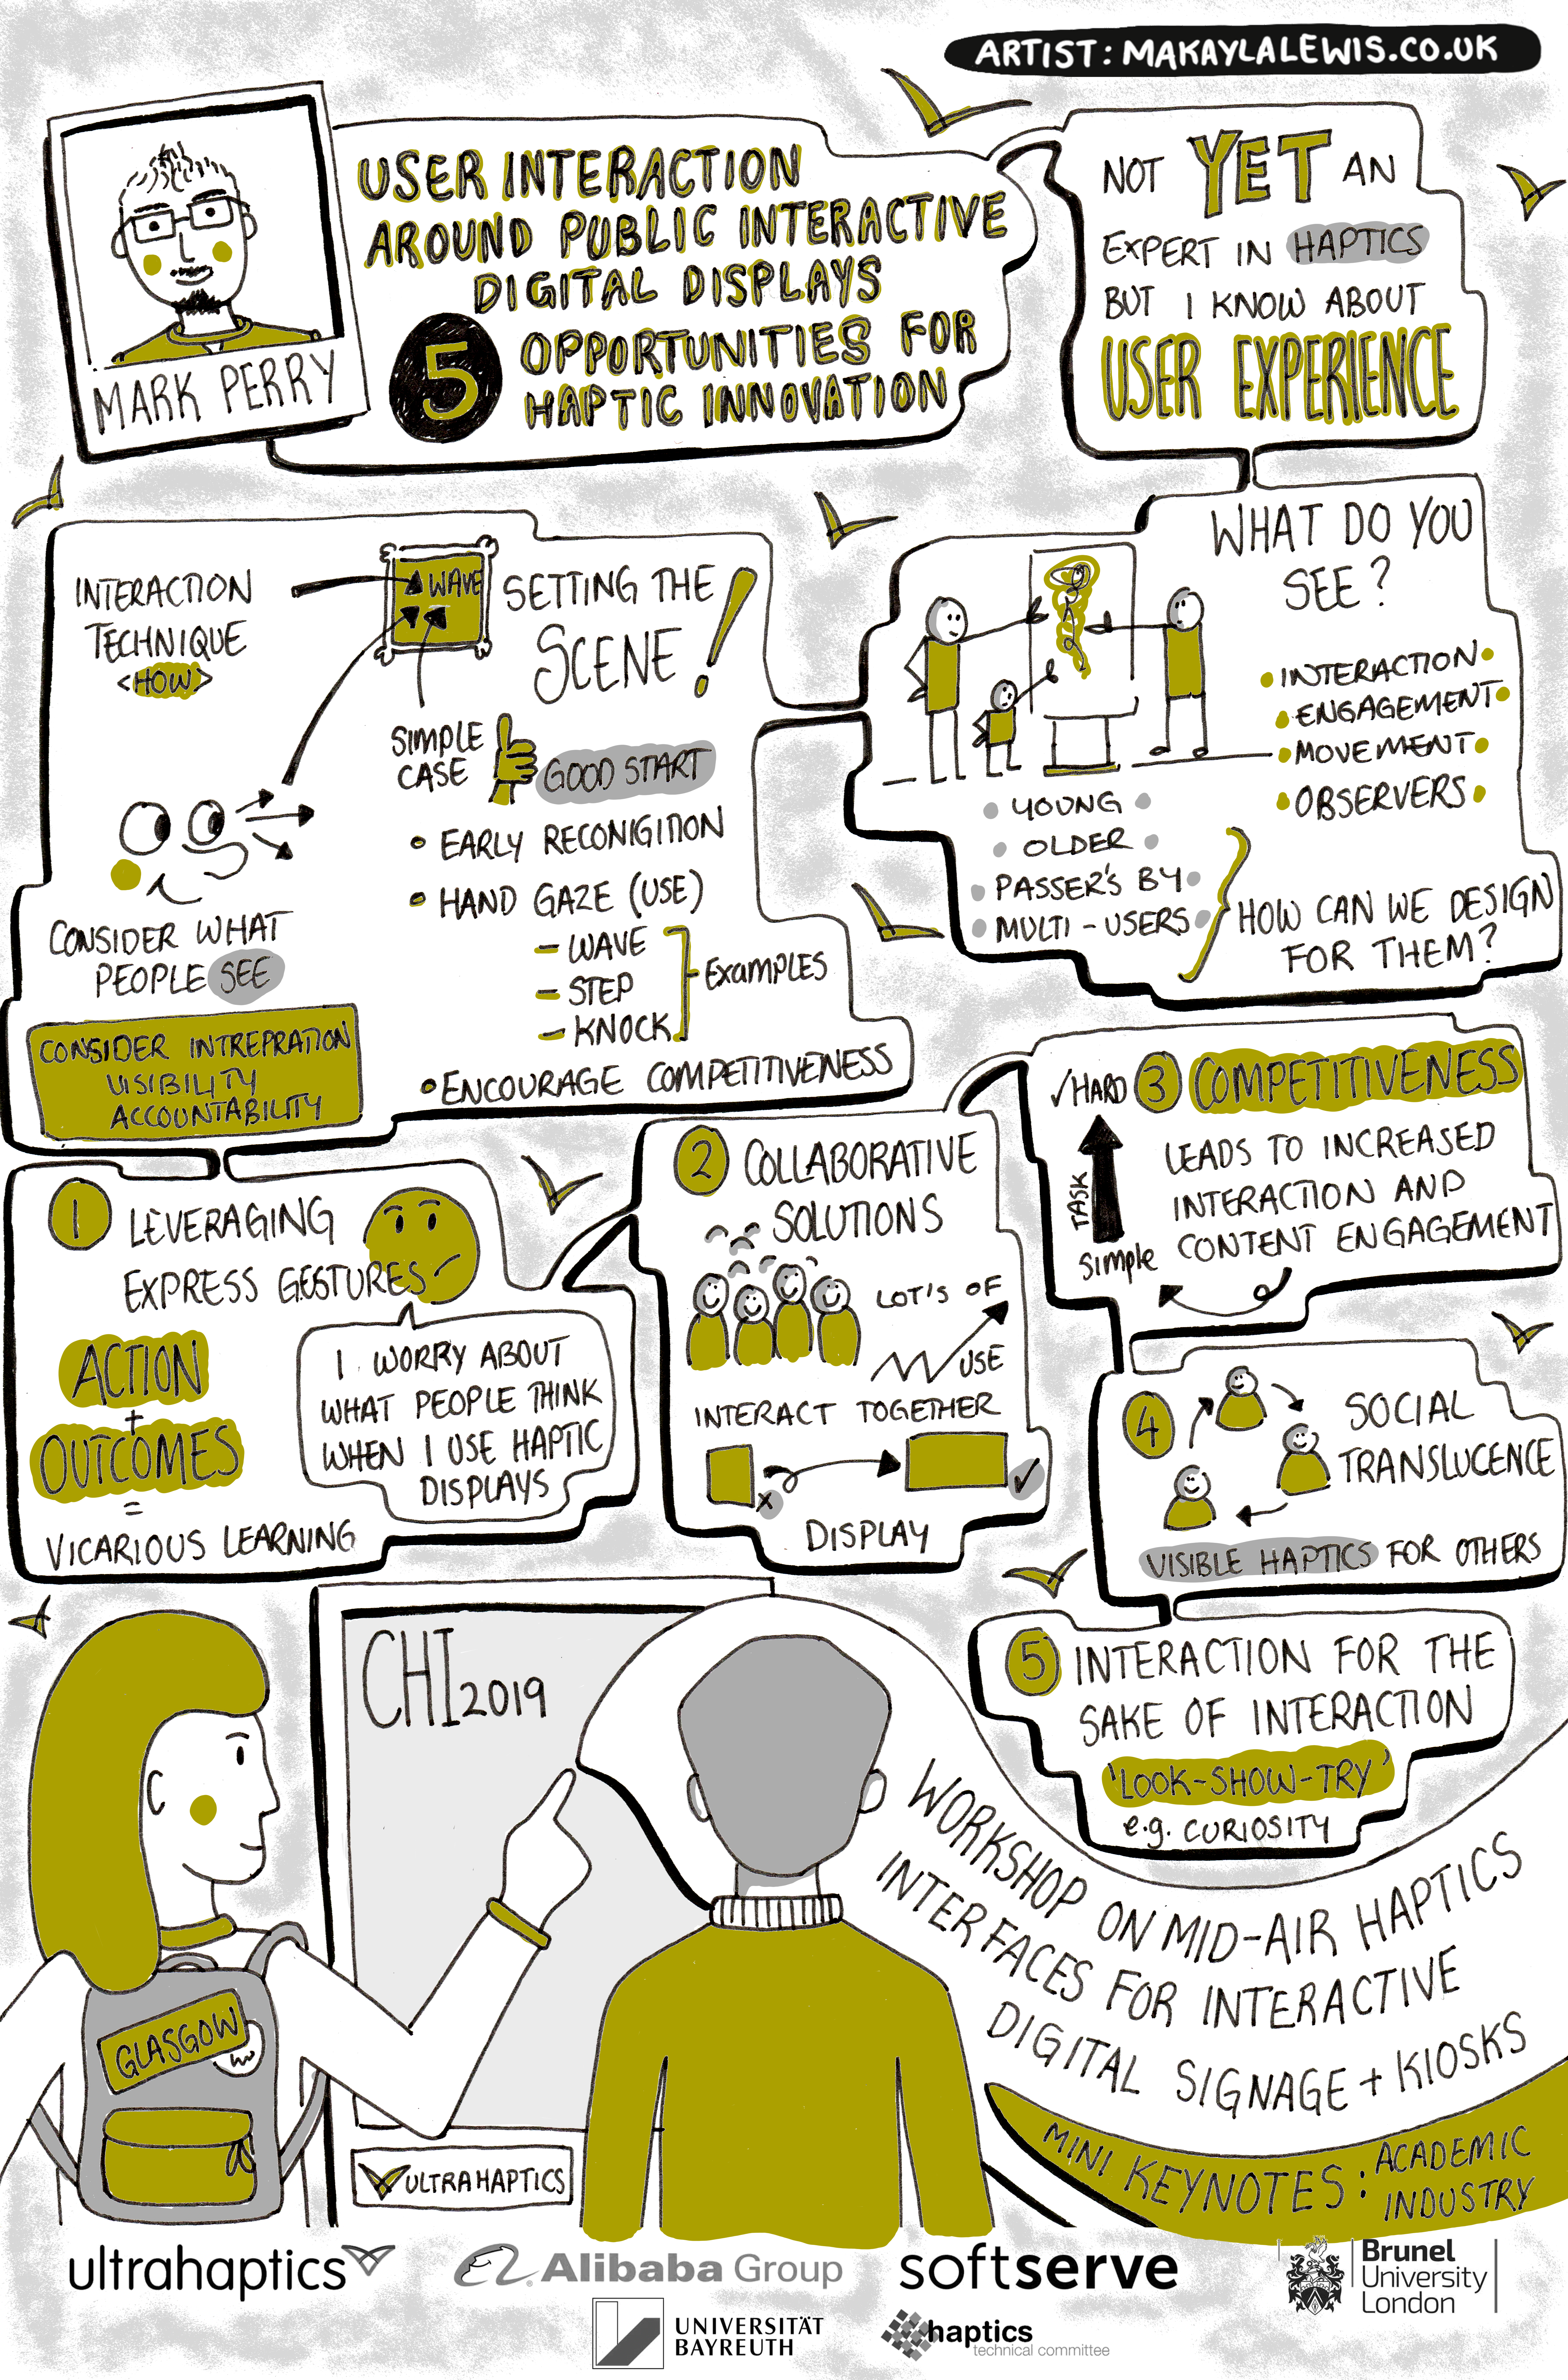 ARTIST: MAKAYLALEWIS.CO.UK
MARK PERRY
USER INTERACTION
AROUND PUBLIC INTERACTIVE
DIGITAL DISPLAYS
5 OPPORTUNITIES FOR
HAPTIC INNOVATION
NOT YET AN
EXPERT IN HAPTICS
BUT I KNOW ABOUT
USER EXPERIENCE
WHAT DO YOU
SEE?
• INTERACTION •
• ENGAGEMENT •
• MOVEMENT •
• OBSERVERS •
• YOUNG •
• OLDER •
• PASSER'S BY •
• MULTI-USERS •
HOW CAN WE DESIGN
FOR THEM?
SETTING THE
SCENE!
INTERACTION
TECHNIQUE
<HOW>
WAVE
SIMPLE
CASE
GOOD START
• EARLY RECONIGITION
• HAND GAZE (USE)
- WAVE
- STEP
- KNOCK
EXAMPLES
• ENCOURAGE COMPETITIVENESS
CONSIDER WHAT
PEOPLE SEE
CONSIDER INTREPRATION
VISIBILITY
ACCOUNTABILITY
1 LEVERAGING
EXPRESS GESTURES
ACTION
+
OUTCOMES
=
VICARIOUS LEARNING
I WORRY ABOUT
WHAT PEOPLE THINK
WHEN I USE HAPTIC
DISPLAYS
2 COLLABORATIVE
SOLUTIONS
LOT'S OF
USE
INTERACT TOGETHER
x
✓
DISPLAY
3 COMPETITIVENESS
✓HARD
TASK
Simple
LEADS TO INCREASED
INTERACTION AND
CONTENT ENGAGEMENT
4 SOCIAL
TRANSLUCENCE
VISIBLE HAPTICS FOR OTHERS
5 INTERACTION FOR THE
SAKE OF INTERACTION
'LOOK-SHOW-TRY'
e.g. CURIOSITY
CHI 2019
GLASGOW
ULTRAHAPTICS
WORKSHOP ON MID-AIR HAPTICS
INTERFACES FOR INTERACTIVE
DIGITAL SIGNAGE + KIOSKS
MINI KEYNOTES: ACADEMIC
INDUSTRY
ultrahaptics
Alibaba Group
softserve
Brunel
University
London
UNIVERSITÄT
BAYREUTH
haptics
technical committee